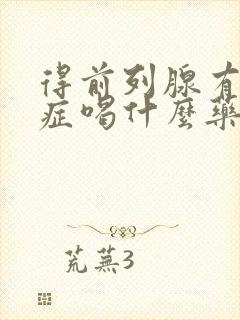 得前列腺有
症喝什麼藥
荒蕪3